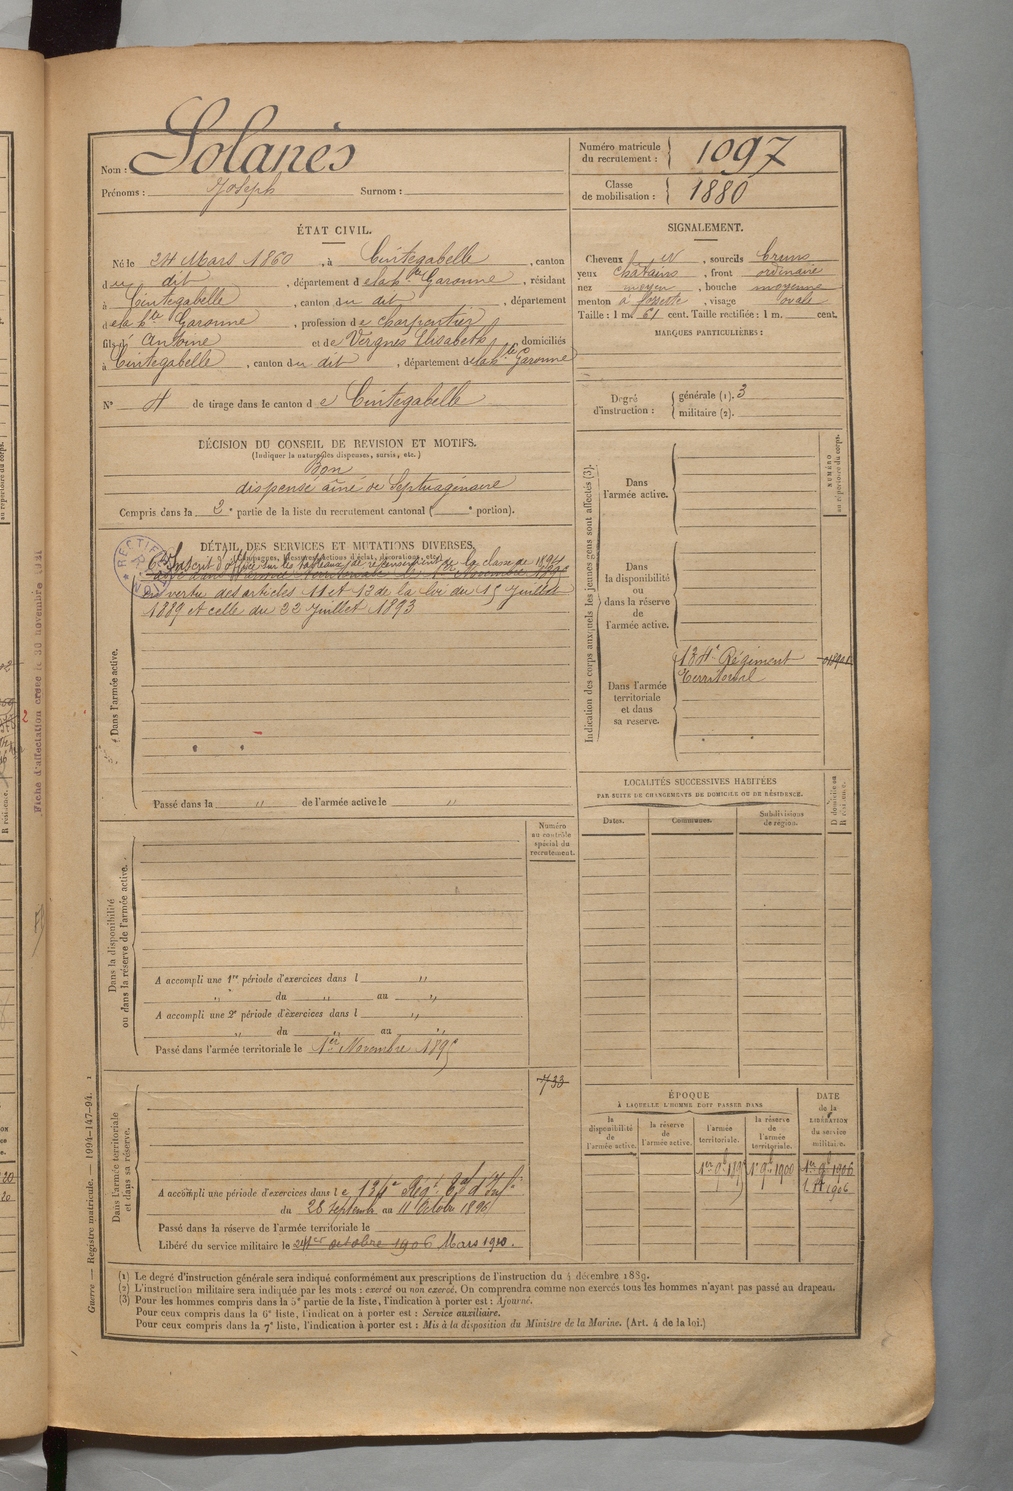 Nom : Solanès
Prénoms : Joseph Surnom :
Numéro matricule du recrutement : 1097
Classe de mobilisation : 1880
ÉTAT CIVIL.
Né le 24 Mars 1860, à Cintegabelle, canton
du dit, département de la hte Garonne, résidant
à Cintegabelle, canton du dit, département
de la hte Garonne, profession de charpentier
fils d' Antoine et de Vergnès Elisabeth, domiciliés
à Cintegabelle, canton du dit, département de la hte Garonne
N° 4 de tirage dans le canton de Cintegabelle
SIGNALEMENT.
Cheveux et, sourcils bruns
yeux chatains, front ordinaire
nez moyen, bouche moyenne
menton à fossette, visage ovale
Taille : 1 m. 61 cent. Taille rectifiée : 1 m. cent.
MARQUES PARTICULIÈRES :
Degré d'instruction : générale (1). 3
militaire (2).
DÉCISION DU CONSEIL DE REVISION ET MOTIFS.
(Indiquer la nature des dispenses, sursis, etc.)
Bon
dispensé ainé de Septuagénaire
Compris dans la 2e partie de la liste du recrutement cantonal ( e portion).
DÉTAIL DES SERVICES ET MUTATIONS DIVERSES.
(Campagnes, blessures, actions d'éclat, décorations, etc.)
Inscrit d'office sur les tableaux de recensement de la classe de 1894
passé dans l'armée territoriale le 1er Novembre
en vertu des articles 11 et 12 de la loi du 15 Juillet
1889 et celle du 22 Juillet 1893
Dans l'armée active.
Passé dans la " de l'armée active le "
Indication des corps auxquels les jeunes gens sont affectés (3).
NUMÉRO au répertoire du corps.
Dans l'armée active.
Dans la disponibilité ou dans la réserve de l'armée active.
Dans l'armée territoriale et dans sa réserve.
134e Régiment
Territorial
LOCALITÉS SUCCESSIVES HABITÉES
PAR SUITE DE CHANGEMENTS DE DOMICILE OU DE RÉSIDENCE.
Dates. Communes. Subdivisions de région.
D domicile ou R résidence.
Numéro au contrôle spécial du recrutement.
Dans la disponibilité ou dans la réserve de l'armée active.
A accompli une 1re période d'exercices dans l "
" du " au "
A accompli une 2e période d'exercices dans l "
" du " au "
Passé dans l'armée territoriale le 1er Novembre 1895
733
Dans l'armée territoriale et dans sa réserve.
A accompli une période d'exercices dans le 134e Régt Eal d'Infie
du 28 septembre au 11 Octobre 1896
Passé dans la réserve de l'armée territoriale le
Libéré du service militaire le 1er octobre 1906 Mars 1910.
ÉPOQUE
À LAQUELLE L'HOMME DOIT PASSER DANS
la disponibilité de l'armée active.
la réserve de l'armée active.
l'armée territoriale.
la réserve de l'armée territoriale.
DATE de la LIBÉRATION du service militaire.
1er 9bre 1895
1er 9bre 1900
1er 9bre 1906
(1) Le degré d'instruction générale sera indiqué conformément aux prescriptions de l'instruction du 4 décembre 1889.
(2) L'instruction militaire sera indiquée par les mots : exercé ou non exercé. On comprendra comme non exercés tous les hommes n'ayant pas passé au drapeau.
(3) Pour les hommes compris dans la 5e partie de la liste, l'indication à porter est : Ajourné.
Pour ceux compris dans la 6e liste, l'indication à porter est : Service auxiliaire.
Pour ceux compris dans la 7e liste, l'indication à porter est : Mis à la disposition du Ministre de la Marine. (Art. 4 de la loi.)
Guerre — Registre matricule. — 1994-147-94.